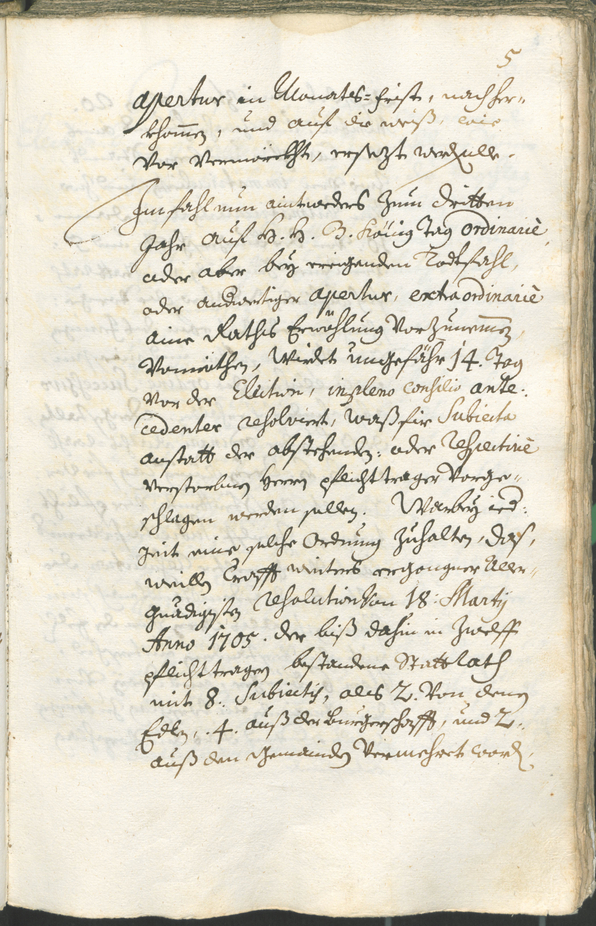 5
apertur in Monats=frist, nach her¬
khommen, und auf die weiß, wie
vor vermörckht, ersezt werden solle.
Im fahl nun eintweders zum dritten
Jahr auf H. H. 3. König Tag ordinariè,
oder aber bey ereigenden Todtfahl,
oder andwertiger apertur, extraordinariè
eine Raths Erwöhlung vorzunemmen
vonnöthen, wirdet ungefähr 14. Tag
vor der Election, in pleno consilio ante¬
cedenter resolvirt, waß für Subiecta
anstatt der abstehenden: oder respectivè
verstorbnen Herrn pflichttrager vorge¬
schlagen werden sollen. Warbey ied:
zeit eine solche Ordnung zuhalten, das,
weillen Crafft unterm ergangner Aller¬
gnädigsten Resolution von 18: Martij
Anno 1705. der biß dahin in Zwelff
pflichttragern bestandene Statt Rath
mit 8. Subiectis, als 2. von denen
Edlen, 4. auß der Burgerschafft, und 2.
auß den Gemainden vermehret word: